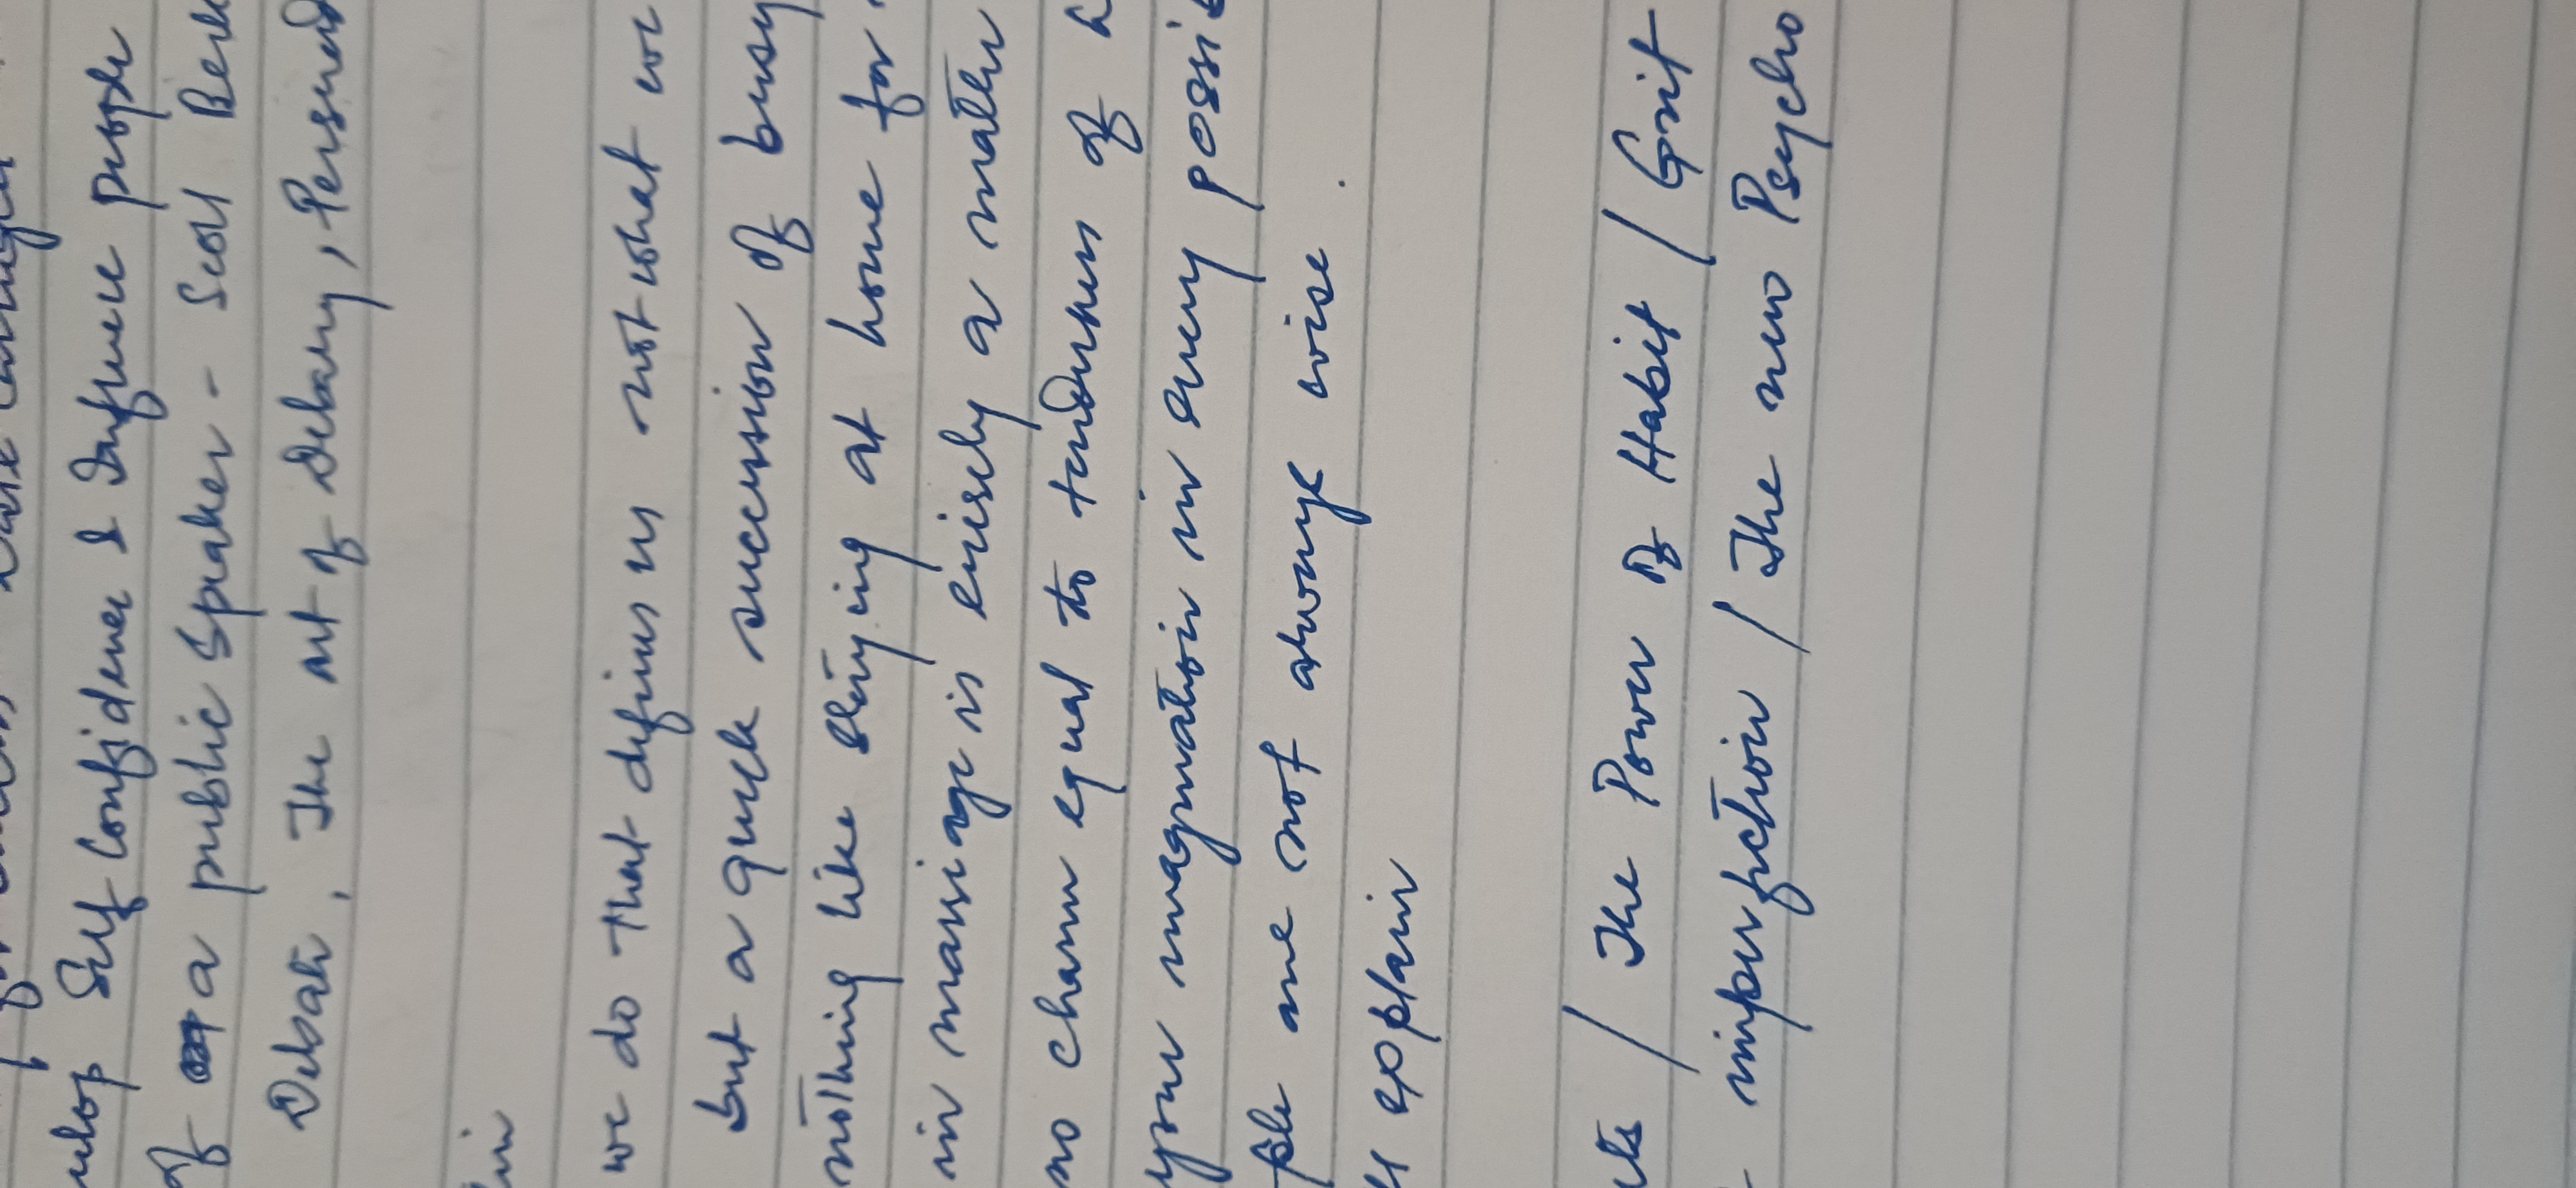 Self Confidence & Influence people
of a public Speaker - Scott
Debate, The art of Debating,
we do that defines us not what we
but a quick succession of busy
nothing like staying at home for
in marriage is entirely a matter
no charm equal to tenderness of h
your imagination in every possi
ple are not always wise.
explain
/ The Power of Habit / Grit
imperfection / The new Psycho